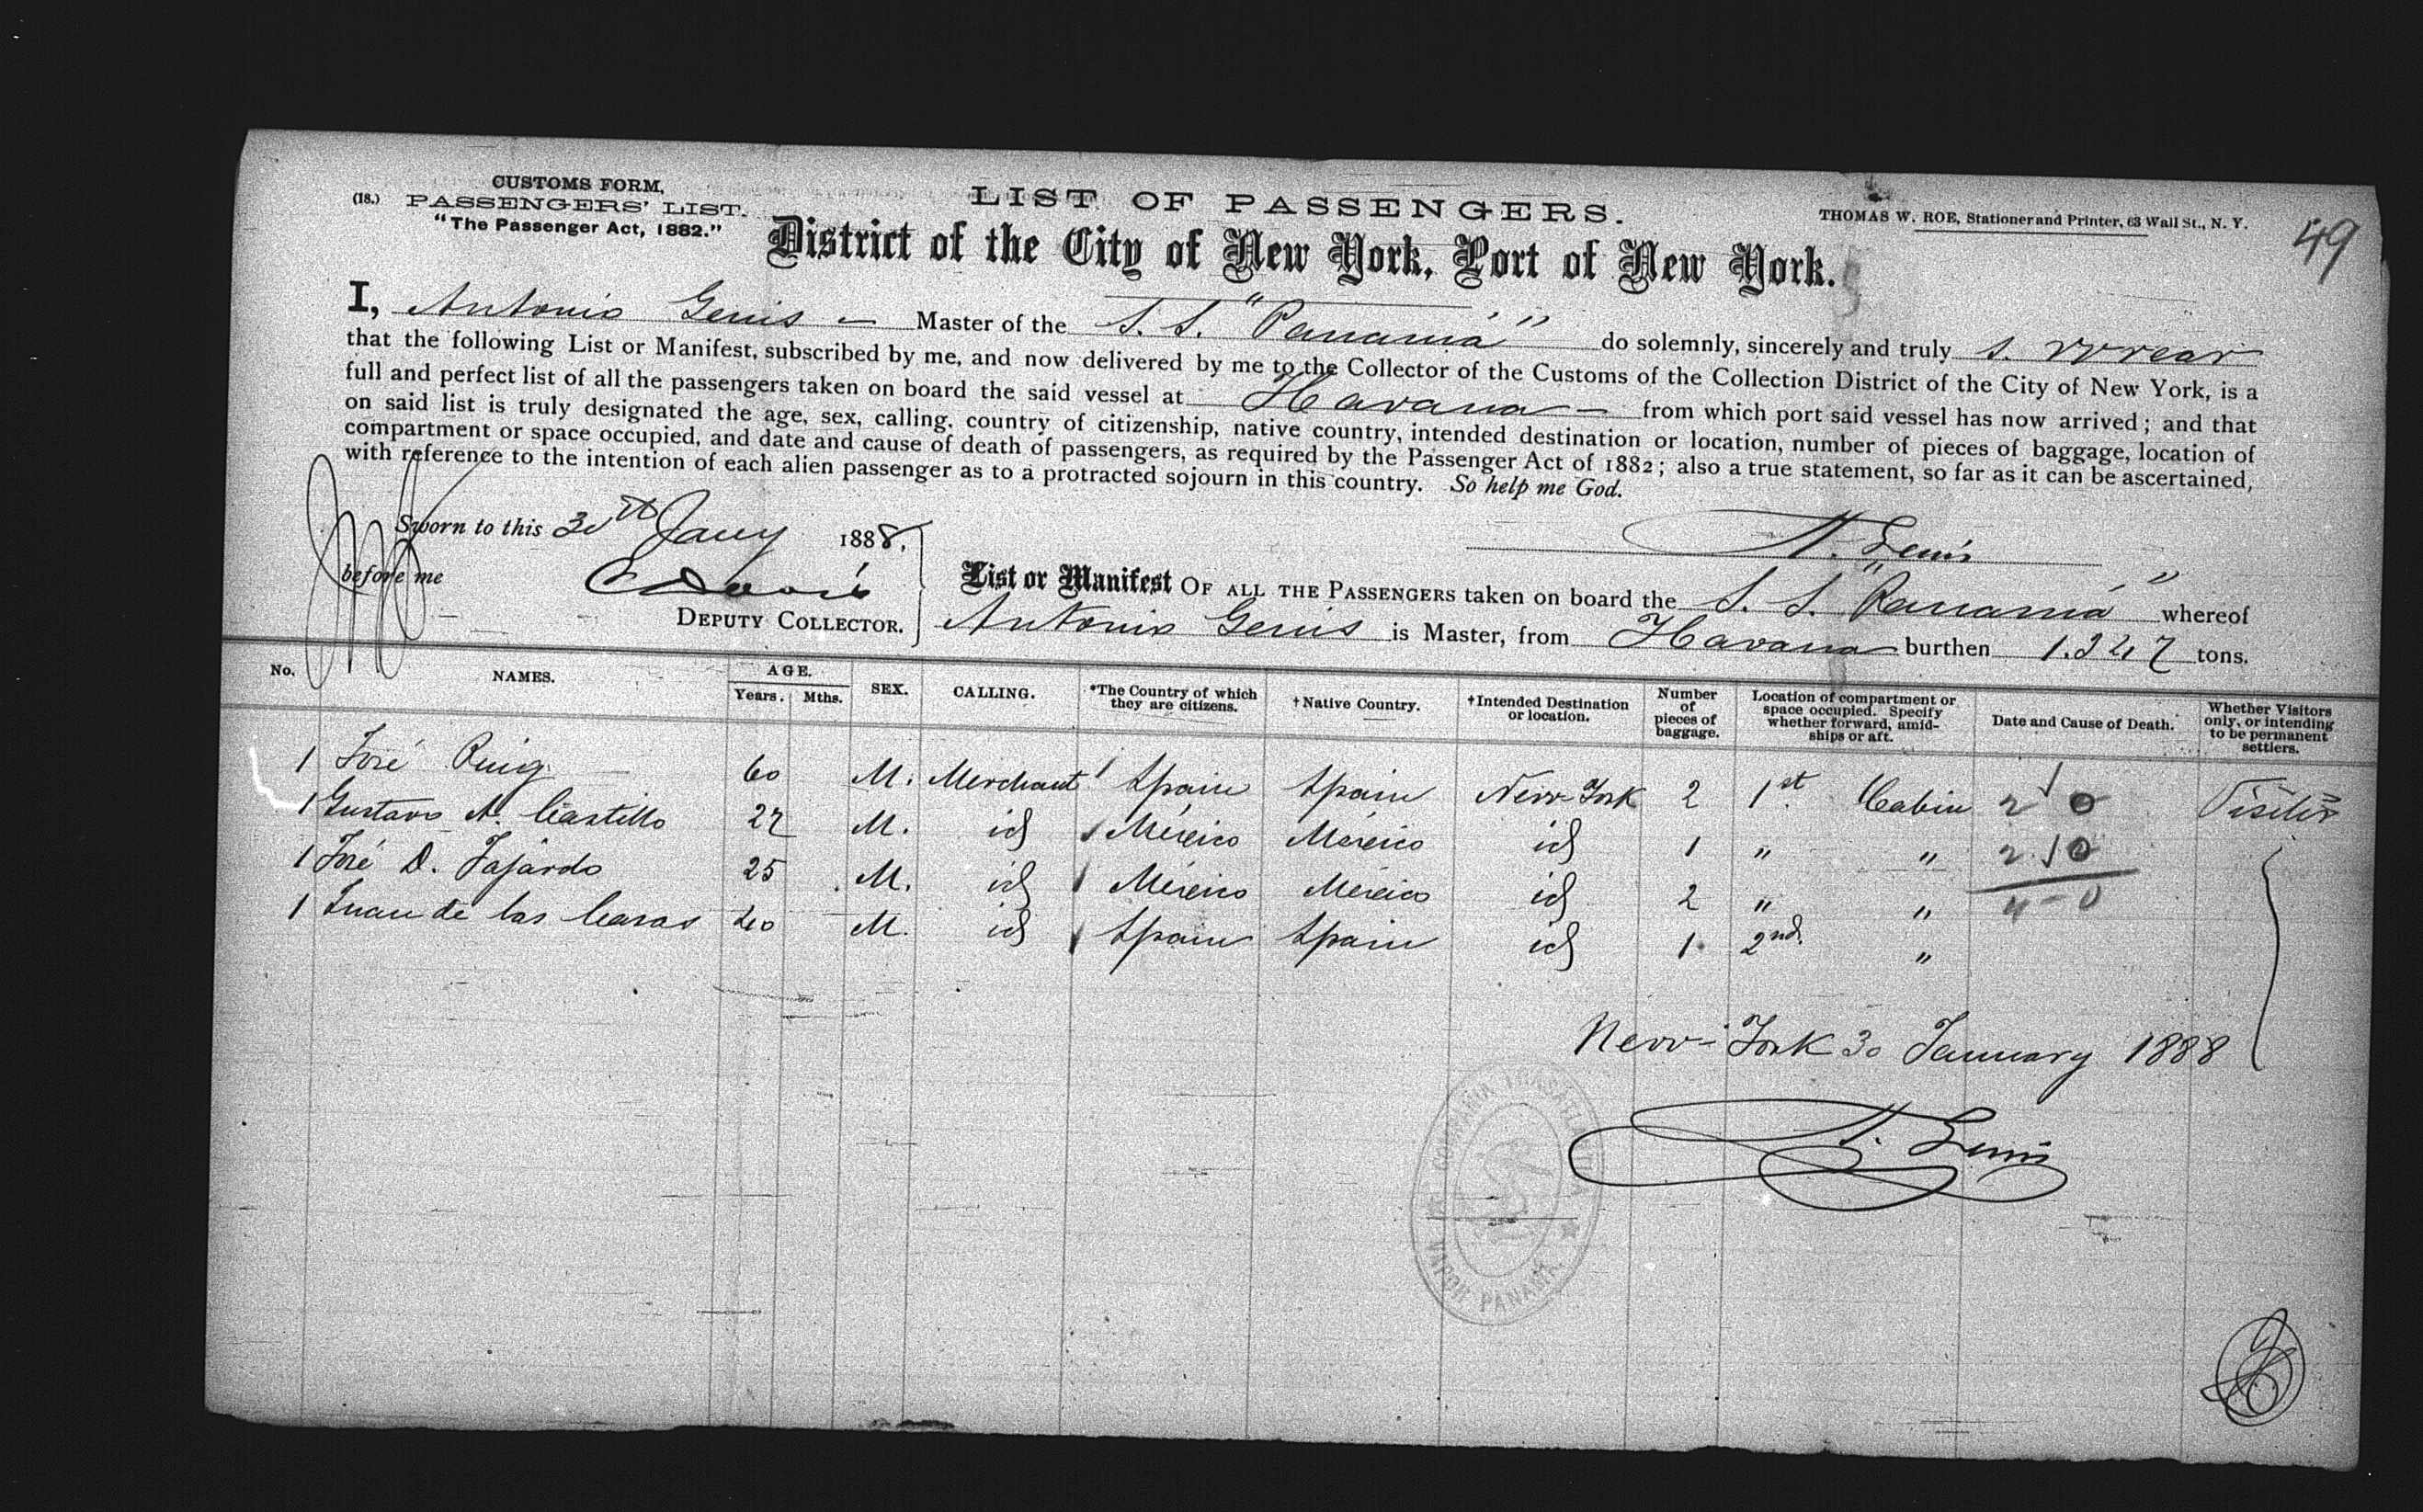 CUSTOMS FORM,
(18.) PASSENGERS' LIST.
"The Passenger Act, 1882."
LIST OF PASSENGERS.
THOMAS W. ROE, Stationer and Printer, 63 Wall St., N. Y.
49
District of the City of New York, Port of New York.
I, Antonio Genis — Master of the S. S. "Panamá" do solemnly, sincerely and truly swear
that the following List or Manifest, subscribed by me, and now delivered by me to the Collector of the Customs of the Collection District of the City of New York, is a
full and perfect list of all the passengers taken on board the said vessel at Havana — from which port said vessel has now arrived; and that
on said list is truly designated the age, sex, calling, country of citizenship, native country, intended destination or location, number of pieces of baggage, location of
compartment or space occupied, and date and cause of death of passengers, as required by the Passenger Act of 1882; also a true statement, so far as it can be ascertained,
with reference to the intention of each alien passenger as to a protracted sojourn in this country. So help me God.
Sworn to this 30th Jany 1888,
A. Genis
before me
DEPUTY COLLECTOR.
List or Manifest OF ALL THE PASSENGERS taken on board the S. S. "Panamá" whereof
Antonio Genis is Master, from Havana burthen tons.
No. NAMES. AGE. Years. Mths. SEX. CALLING. *The Country of which they are citizens. †Native Country. †Intended Destination or location. Number of pieces of baggage. Location of compartment or space occupied. Specify whether forward, amidships or aft. Date and Cause of Death. Whether Visitors only, or intending to be permanent settlers.
1 José Puig 60 M. Merchant Spain Spain New-York 2 1st Cabin 2 0 Visitor
1 Gustavo A. Castillo 27 M. id México México id 1 " " 2 0
1 José D. Fajardo 25 M. id México México id 2 " " 4-0
1 Juan de las Casas 40 M. id Spain Spain id 1 2nd. "
New-York 30 January 1888
A. Genis
COMPAÑIA TRASATLANTICA
VAPOR PANAMÁ